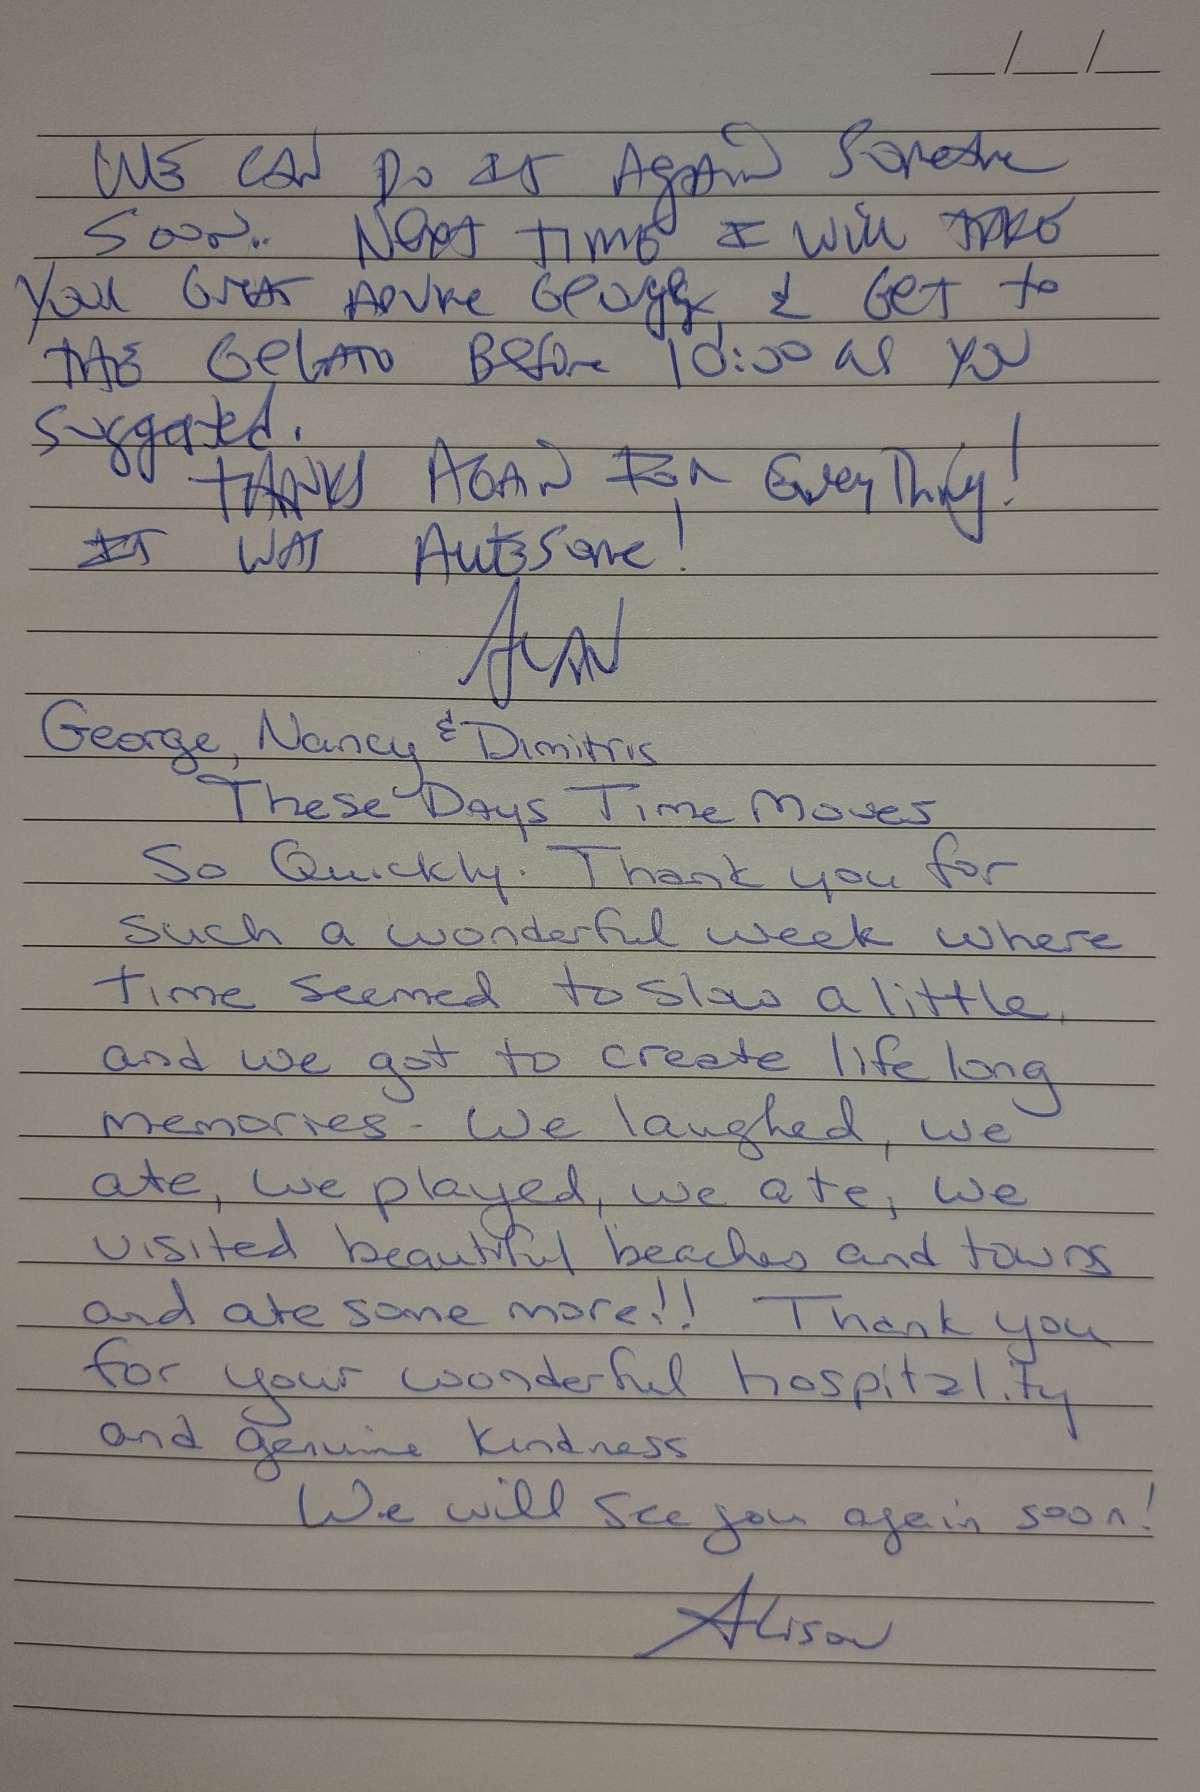 WE CAN DO IT AGAIN Sometime
Soon.. Next TIME I will TAKE
You Great Advice George, & Get to
THE Gelato Before 10:00 as you
suggested.
THANKS AGAIN FOR EveryThing!
IT WAS AWESome!
ALAN
George, Nancy & Dimitris
These Days Time Moves
So Quickly. Thank you for
such a wonderful week where
time seemed to slow a little,
and we got to create life long
memories. We laughed, we
ate, we played, we ate, we
visited beautiful beaches and towns
and ate some more!! Thank you
for your wonderful hospitality
and genuine kindness
We will see you again soon!
Alison